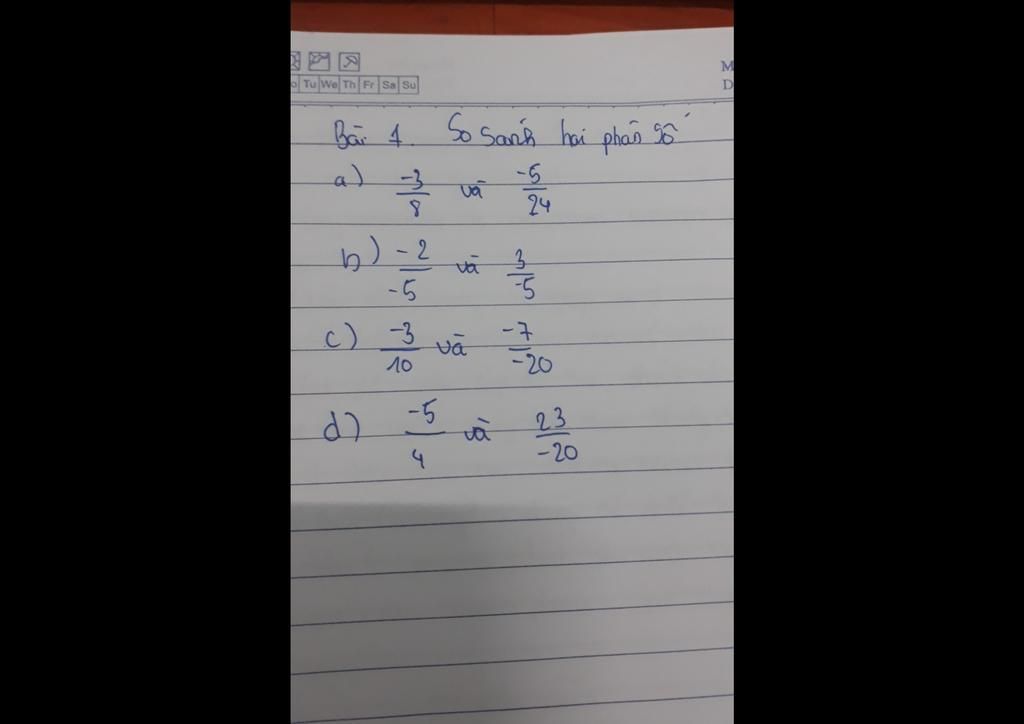 Tu We Th Fr Sa Su
M
D
Bài 1. So sánh hai phân số
a) -3/8 và -5/24
b) -2/-5 và 3/-5
c) -3/10 và -7/-20
d) -5/4 và 23/-20